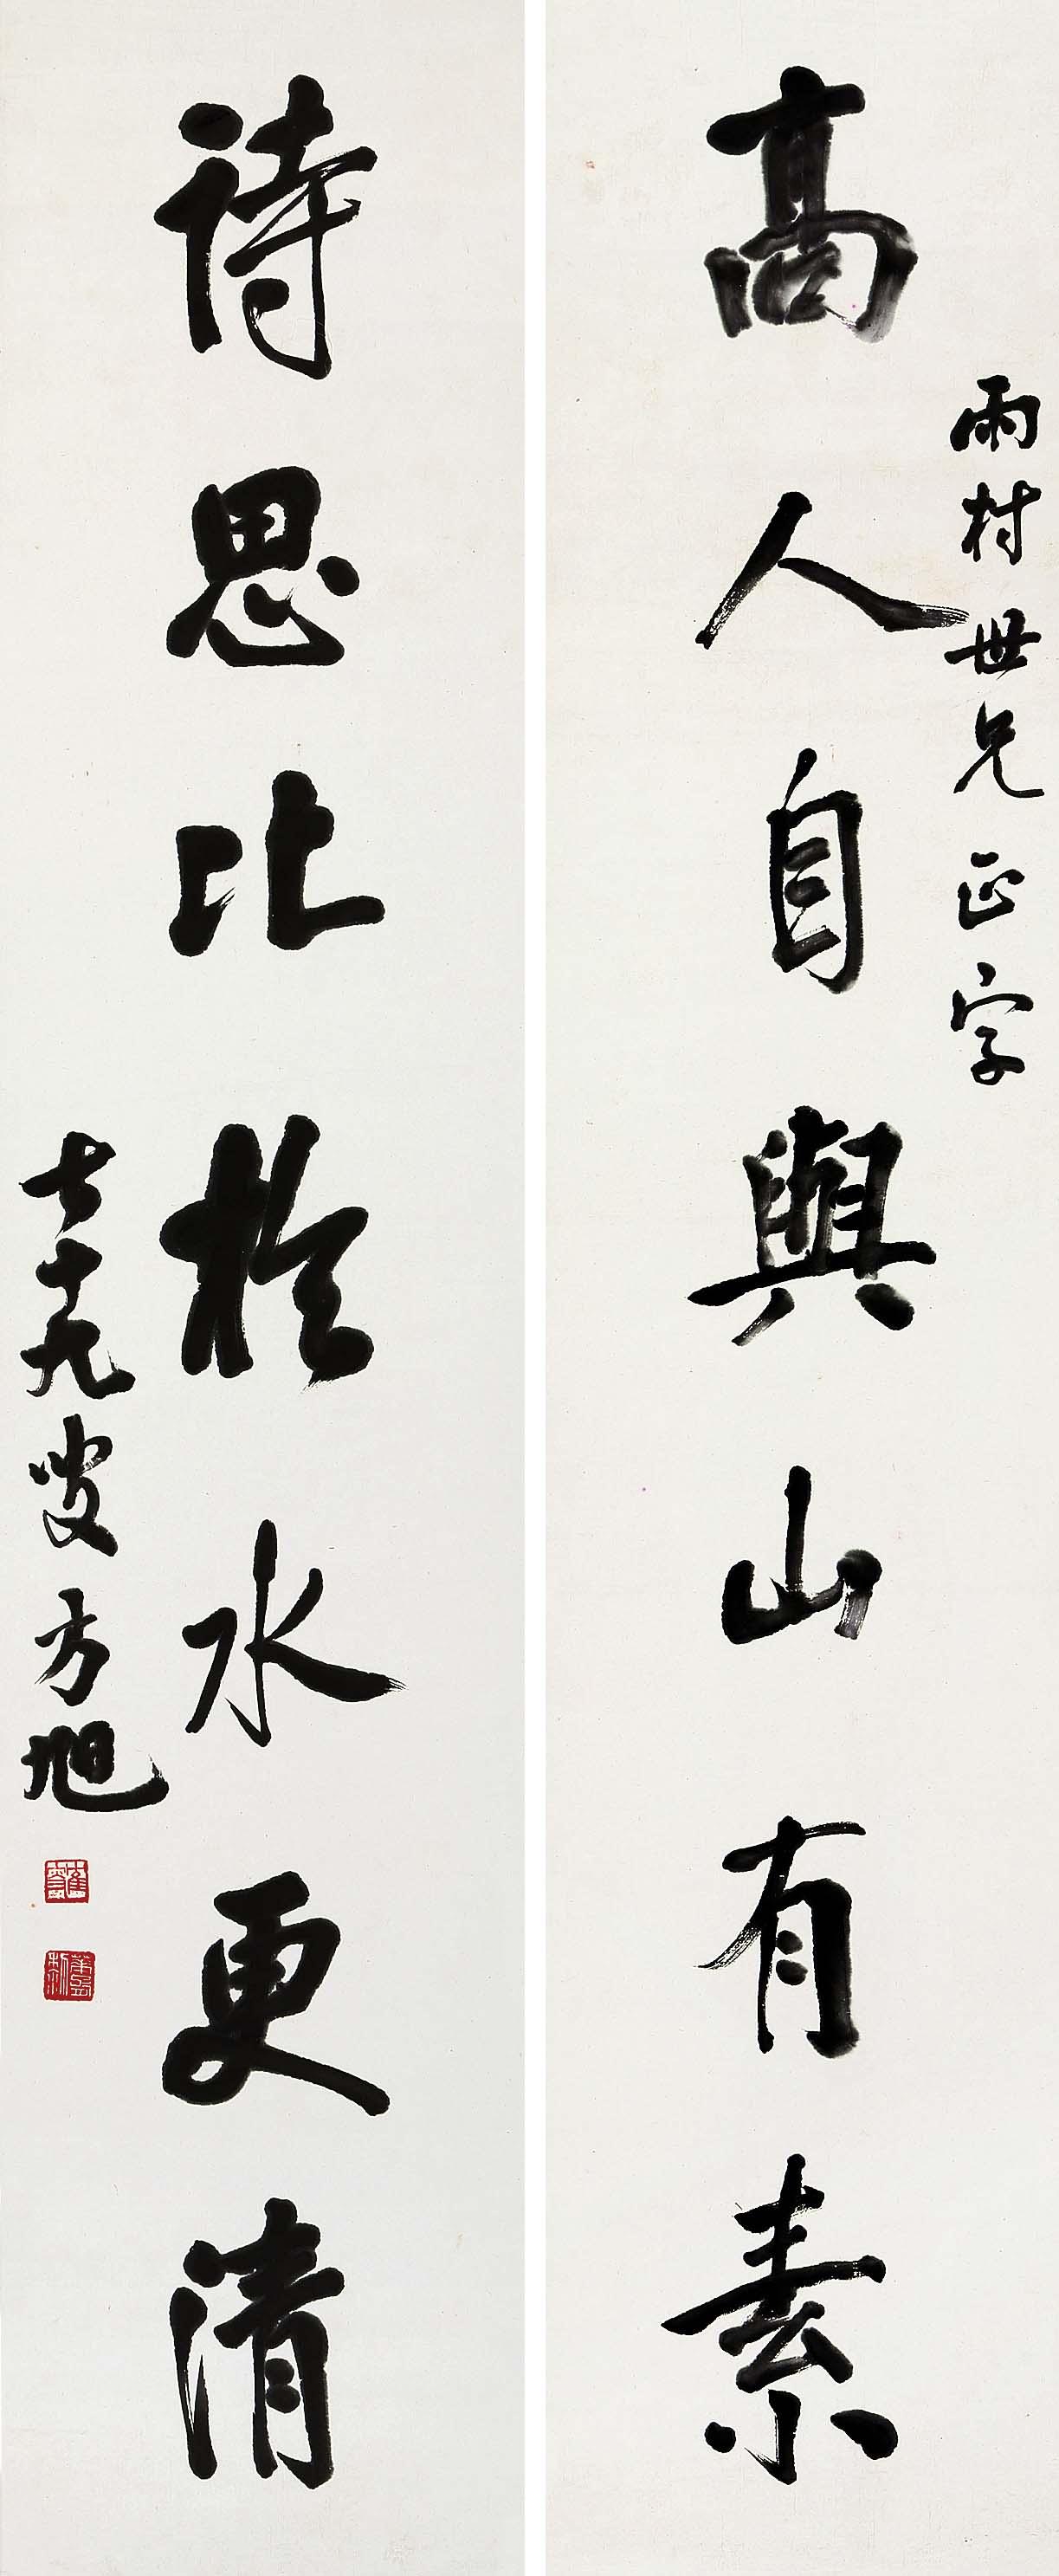 雨村世兄正字
高人自與山有素
詩思比於水更清
七十九叟方旭